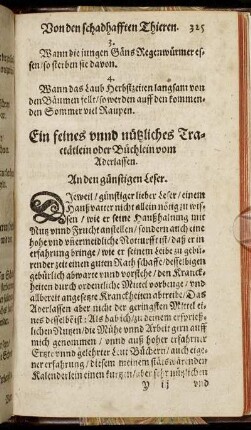 Von den schadhafften Thieren. 325
3.
Wann die jungen Gäns Regenwürmer es-
sen / so sterben sie davon.
4.
Wann das Laub Herbstzeiten langsam von
den Bäumen fellt / so werden auff den kommen-
den Sommer viel Raupen.
Ein feines vnnd nützliches Tra-
ctätlein oder Büchlein vom
Aderlassen.
An den günstigen Leser.
DJeweil / günstiger lieber Leser / einem
Haußvatter nicht allein nötig zu wis-
sen / wie er seine Haußhaltung mit
Nutz vnnd Frucht anstellen / sondern auch eine
hohe vnd vnvermeidliche Notturfft ist / daß er in
erfahrung bringe / wie er seinem Leibe zu gebü-
render zeit einen guten Rath schaffe / desselbigen
gebürlich abwarte vnd vorstehe / den Kranck-
heiten durch ordenliche Mittel vorbeuge / vnd
allbereit angesetzte Kranckheiten abtreibe / Das
Aderlassen aber nicht der geringsten Mittel ei-
nes desselb ist: Als hab ich / zu deinem ersprieß-
lichen Nutzen / die Mühe vnnd Arbeit gern auff
mich genommen / vnnd auß hoher erfahrner
Ertzte vnnd gelehrter Leut Büchern / auch eige-
ner erfahrung / diesem meinem stätswärenden
Kalender lein einen kurtzen / aber sehr nützlichen
Y ij vnd